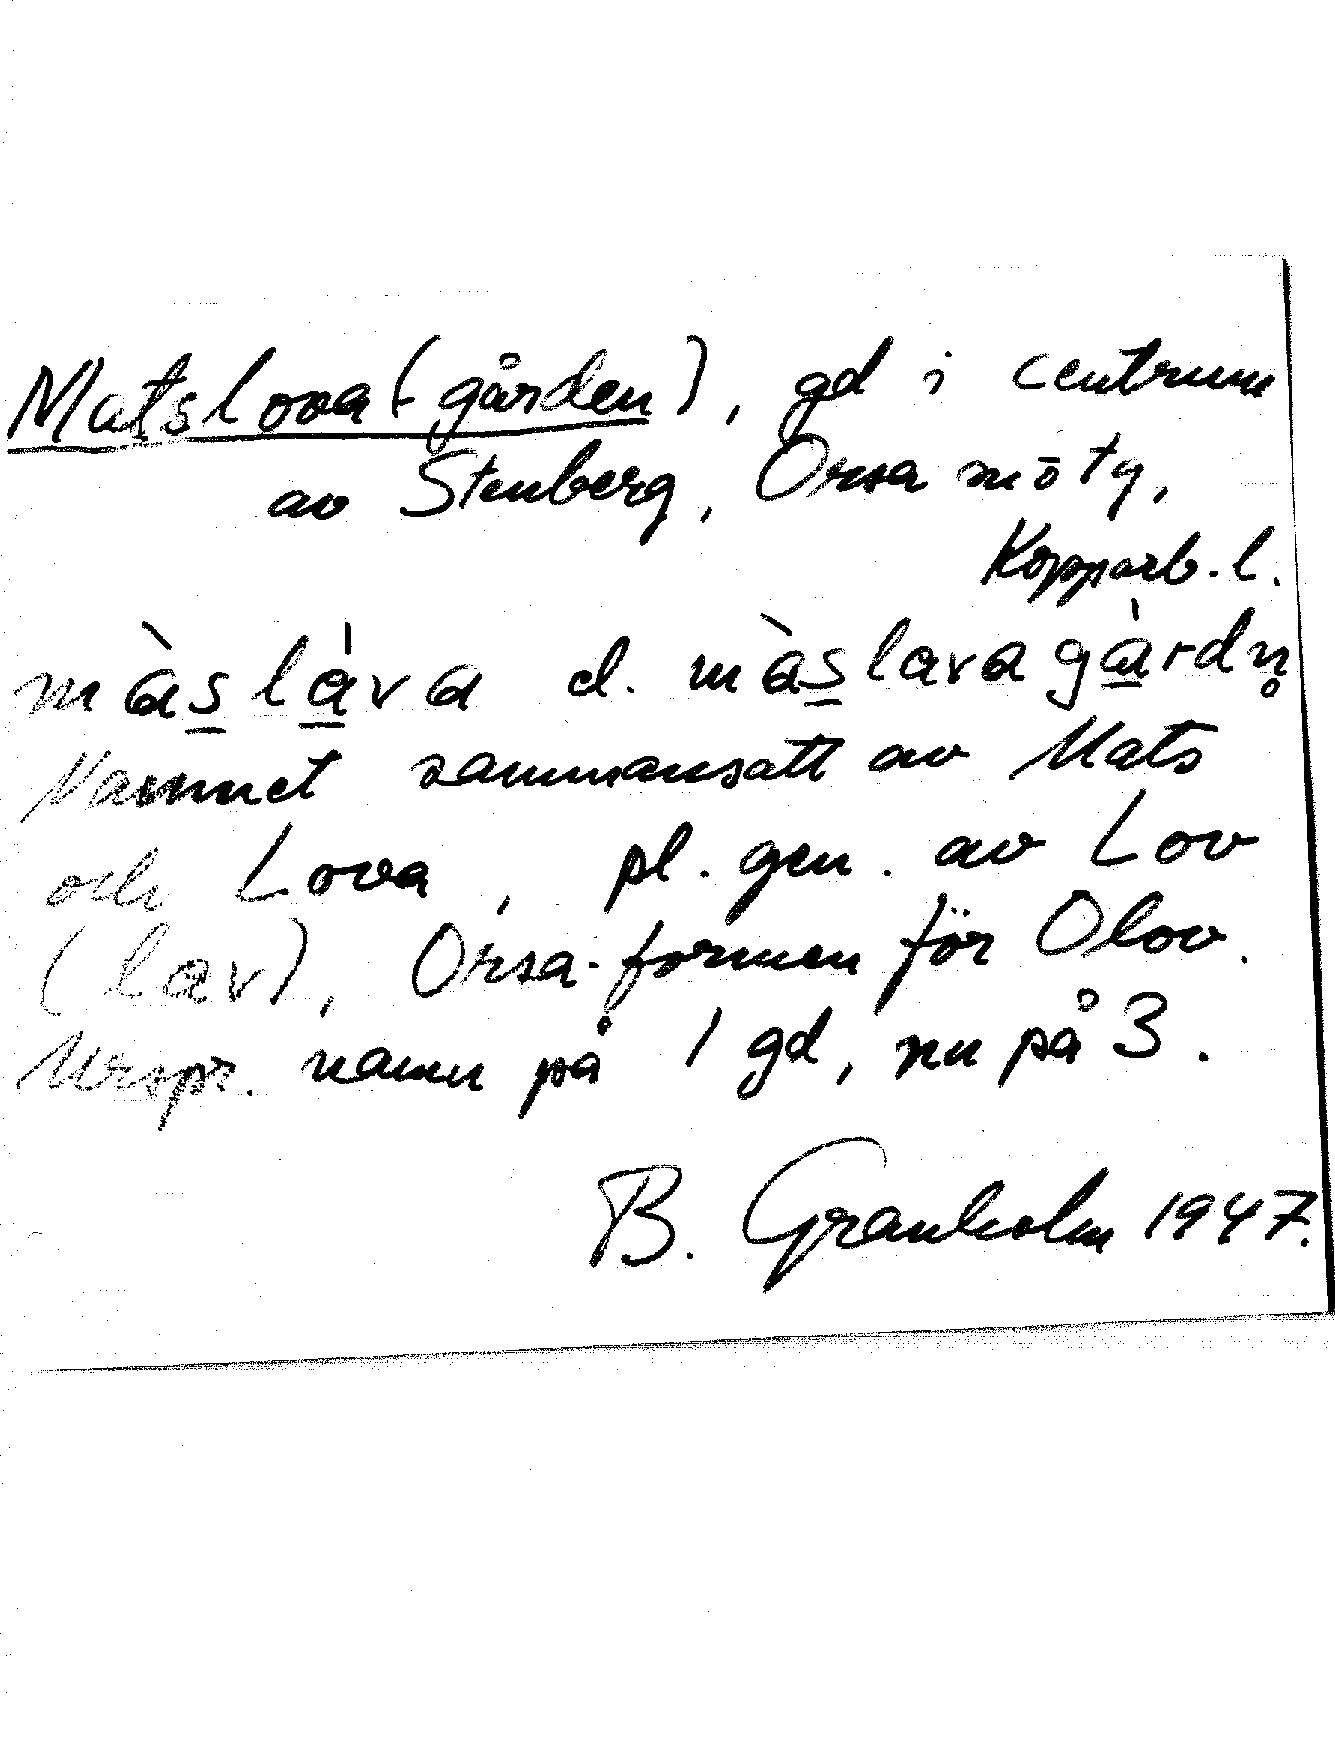 Matslova(-gården), gd i centrum
av Stenberg, Orsa
Kopparb. l.
màs̲là̲va el. màs̲lavagà̲rdn̥
Namnet sammansatt av Mats
och Lova, pl. gen. av Lov
(lav), Orsa-formen för Olov.
Urspr. namn på 1 gd, nu på 3.
B. Granholm 1947.